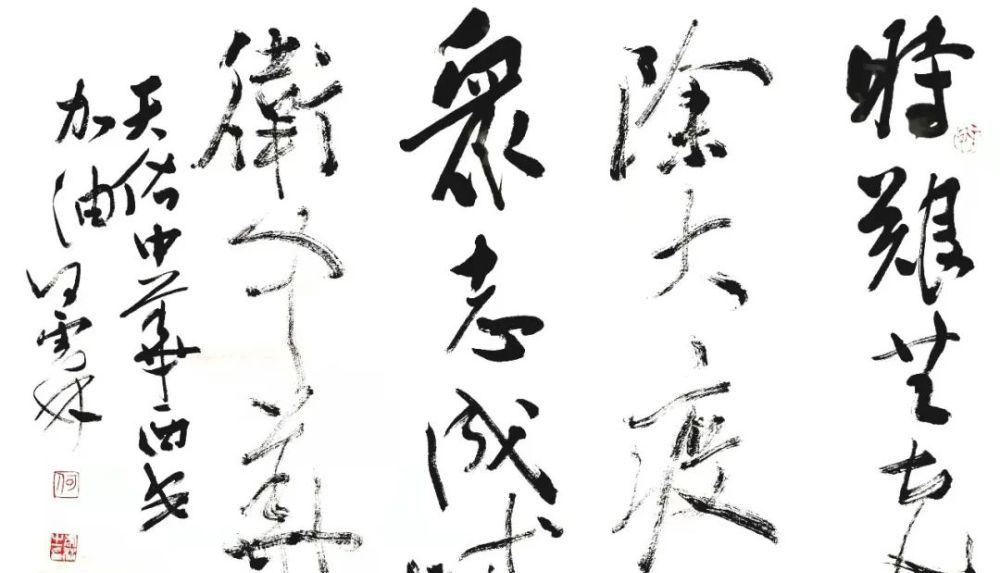 時艱共克
除大疫
眾志成城
衛中華
天佑中華西安
加油
何